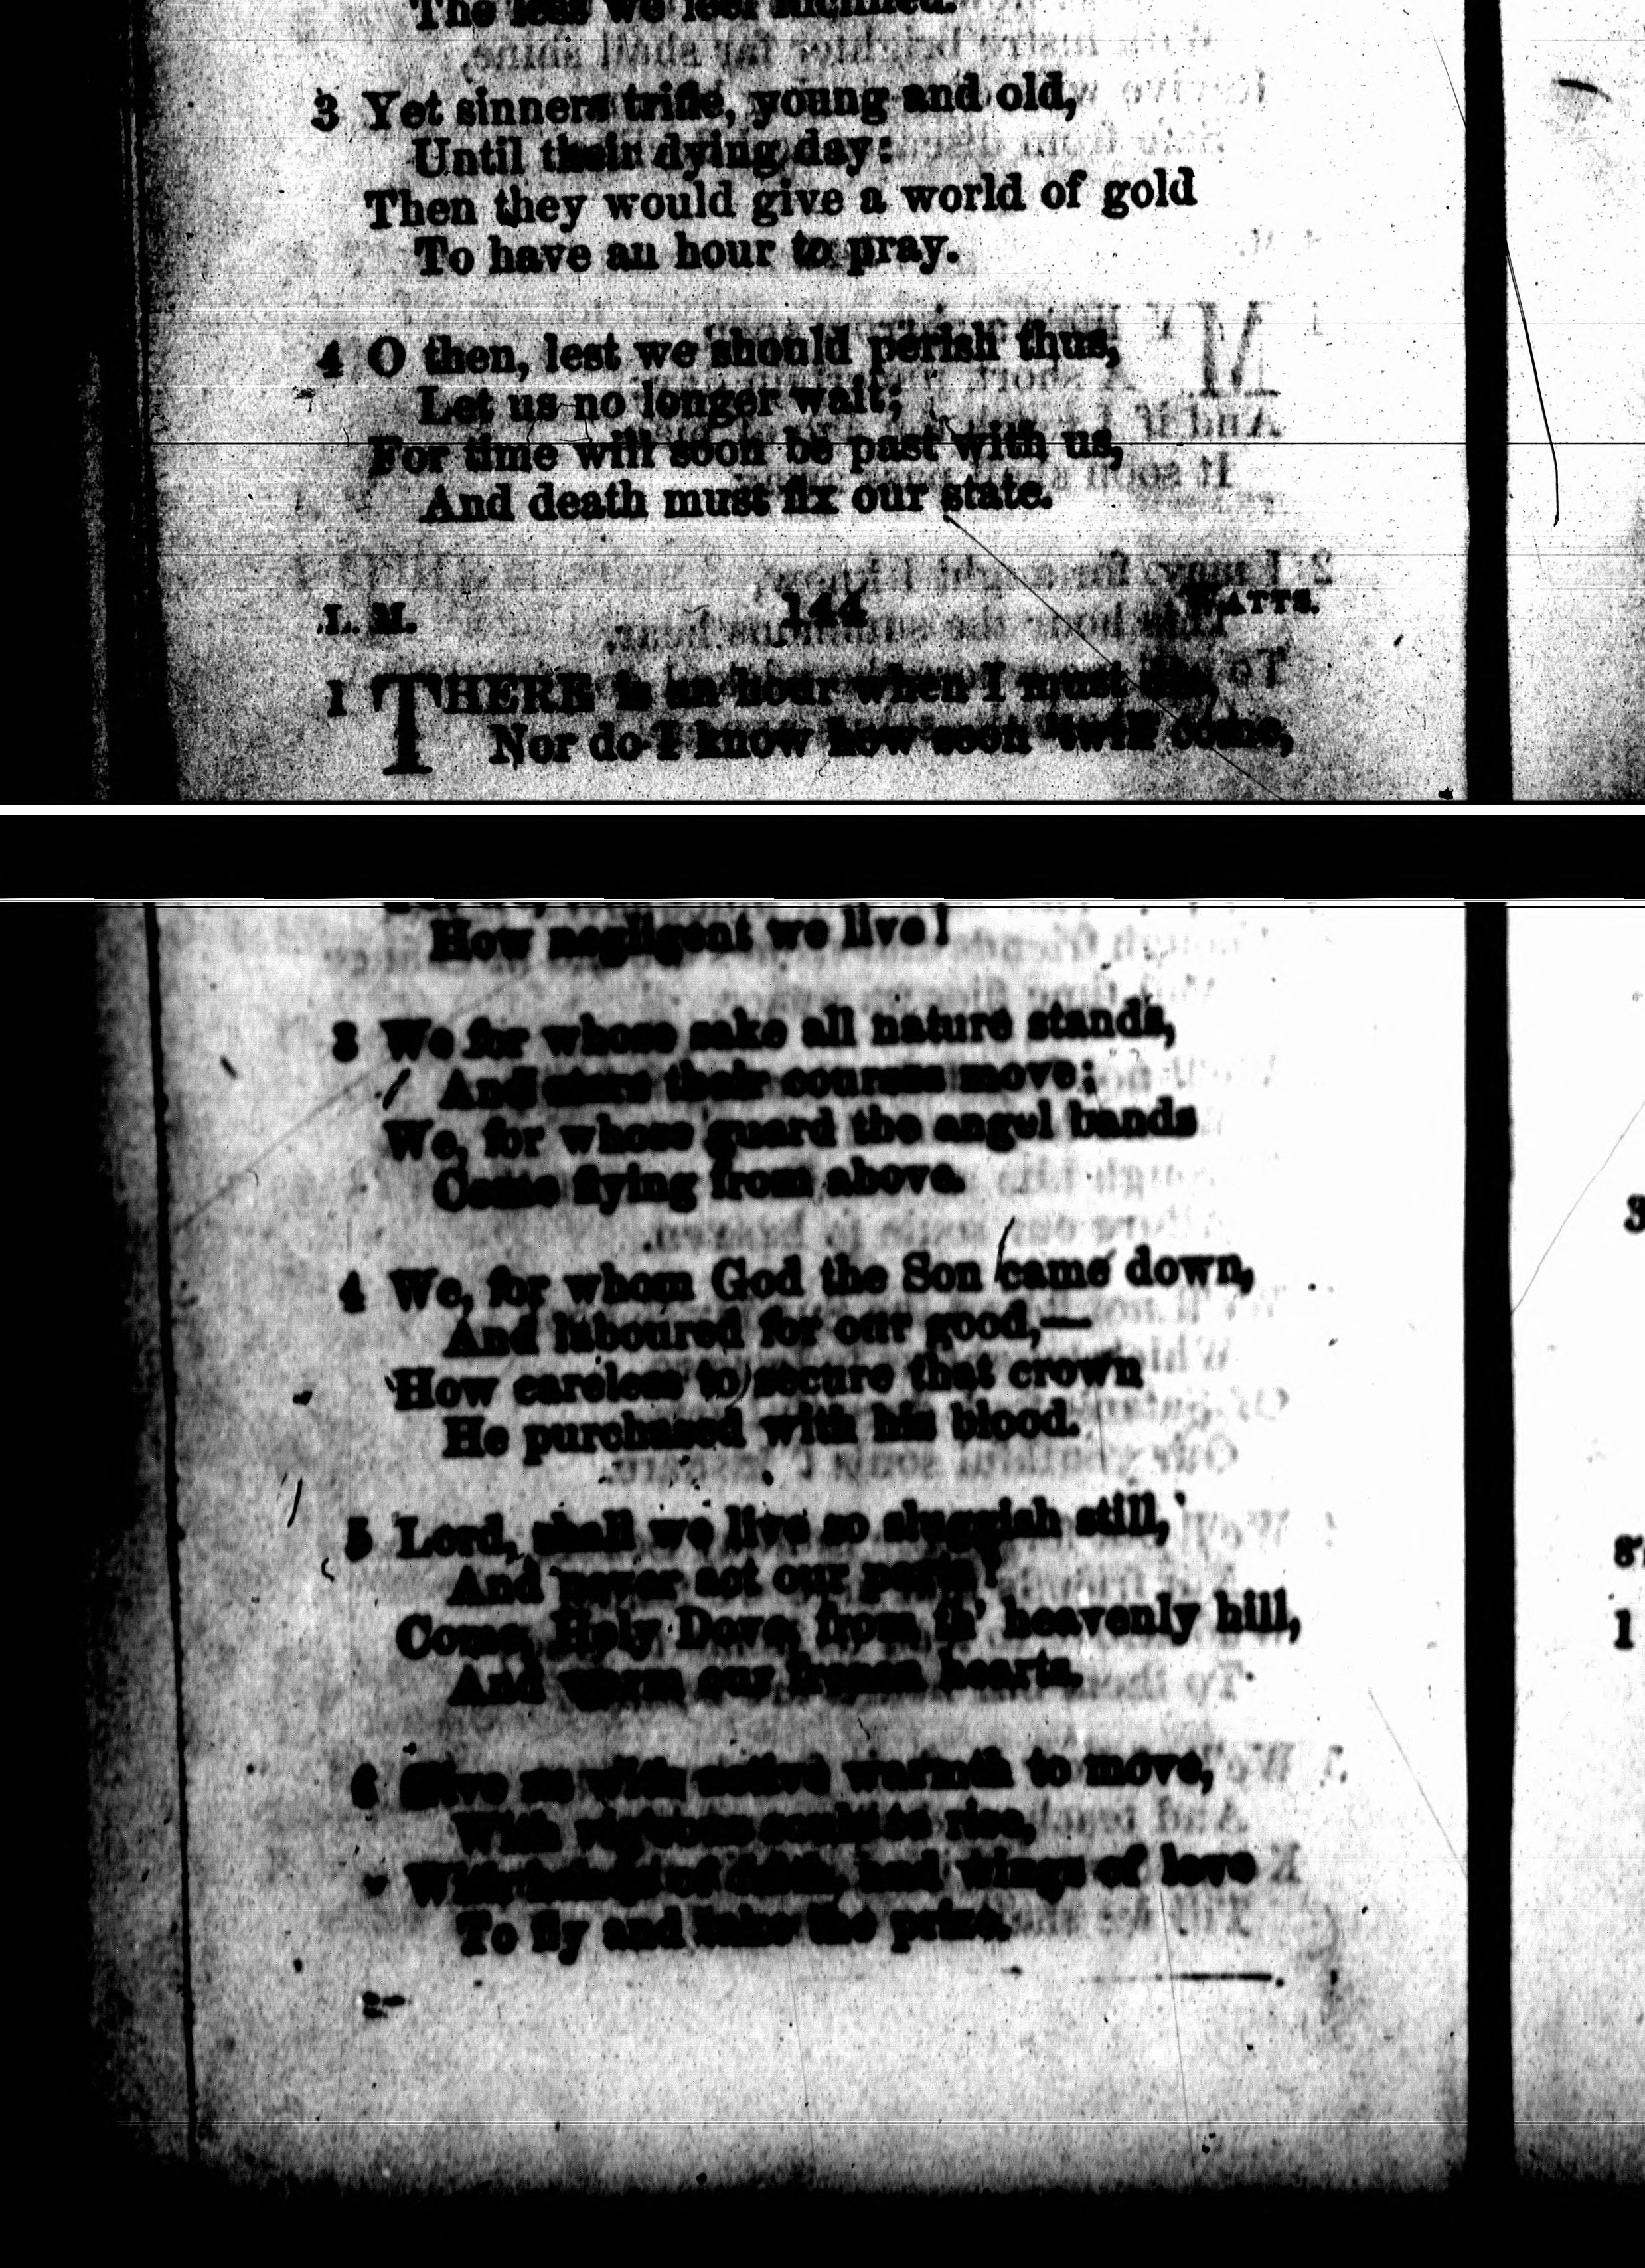 The less we feel inclined.
3 Yet sinners trifle, young and old,
Until their dying day:
Then they would give a world of gold
To have an hour to pray.
4 O then, lest we should perish thus,
Let us no longer wait;
For time will soon be past with us,
And death must fix our state.
L. M. 144 WATTS.
1 THERE is an hour when I must die,
Nor do I know how soon 'twill come,
How negligent we live!
3 We for whose sake all nature stands,
And stars their courses move;
We, for whose guard the angel bands
Come flying from above.
4 We, for whom God the Son came down,
And laboured for our good,—
How careless to secure that crown
He purchased with his blood.
5 Lord, shall we live so sluggish still,
And never act our parts?
Come, Holy Dove, from th' heavenly hill,
And warm our frozen hearts.
6 Give us with active warmth to move,
With rise,
With of faith, and wings of love
To fly and take the prize.
3
1